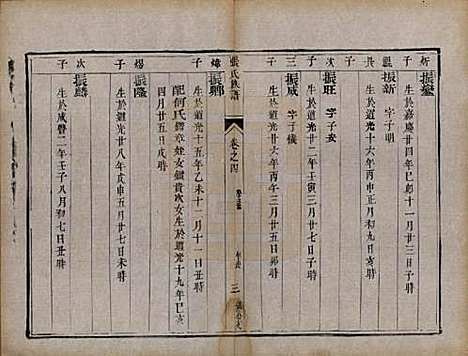 振鑾
生於嘉慶廿四年己卯十一月廿三日子時
振新 字子明
子 生於道光十六年丙申正月初九日亥時
次 振旺 字子炎
子 生於道光廿二年壬寅三月廿八日
三 振威 字子儀
子 生於道光廿六年丙午三月廿五日卯時
張氏族譜 卷之四 三
振鄉
子 生於道光十五年乙未十二月十一日
配何氏 女 次女生於道光十九年己亥
四月廿五日戌時
振隆
子 生於道光廿八年戊申五月廿七日未時
次 振麟
子 生於咸豐二年壬子八月初七日丑時